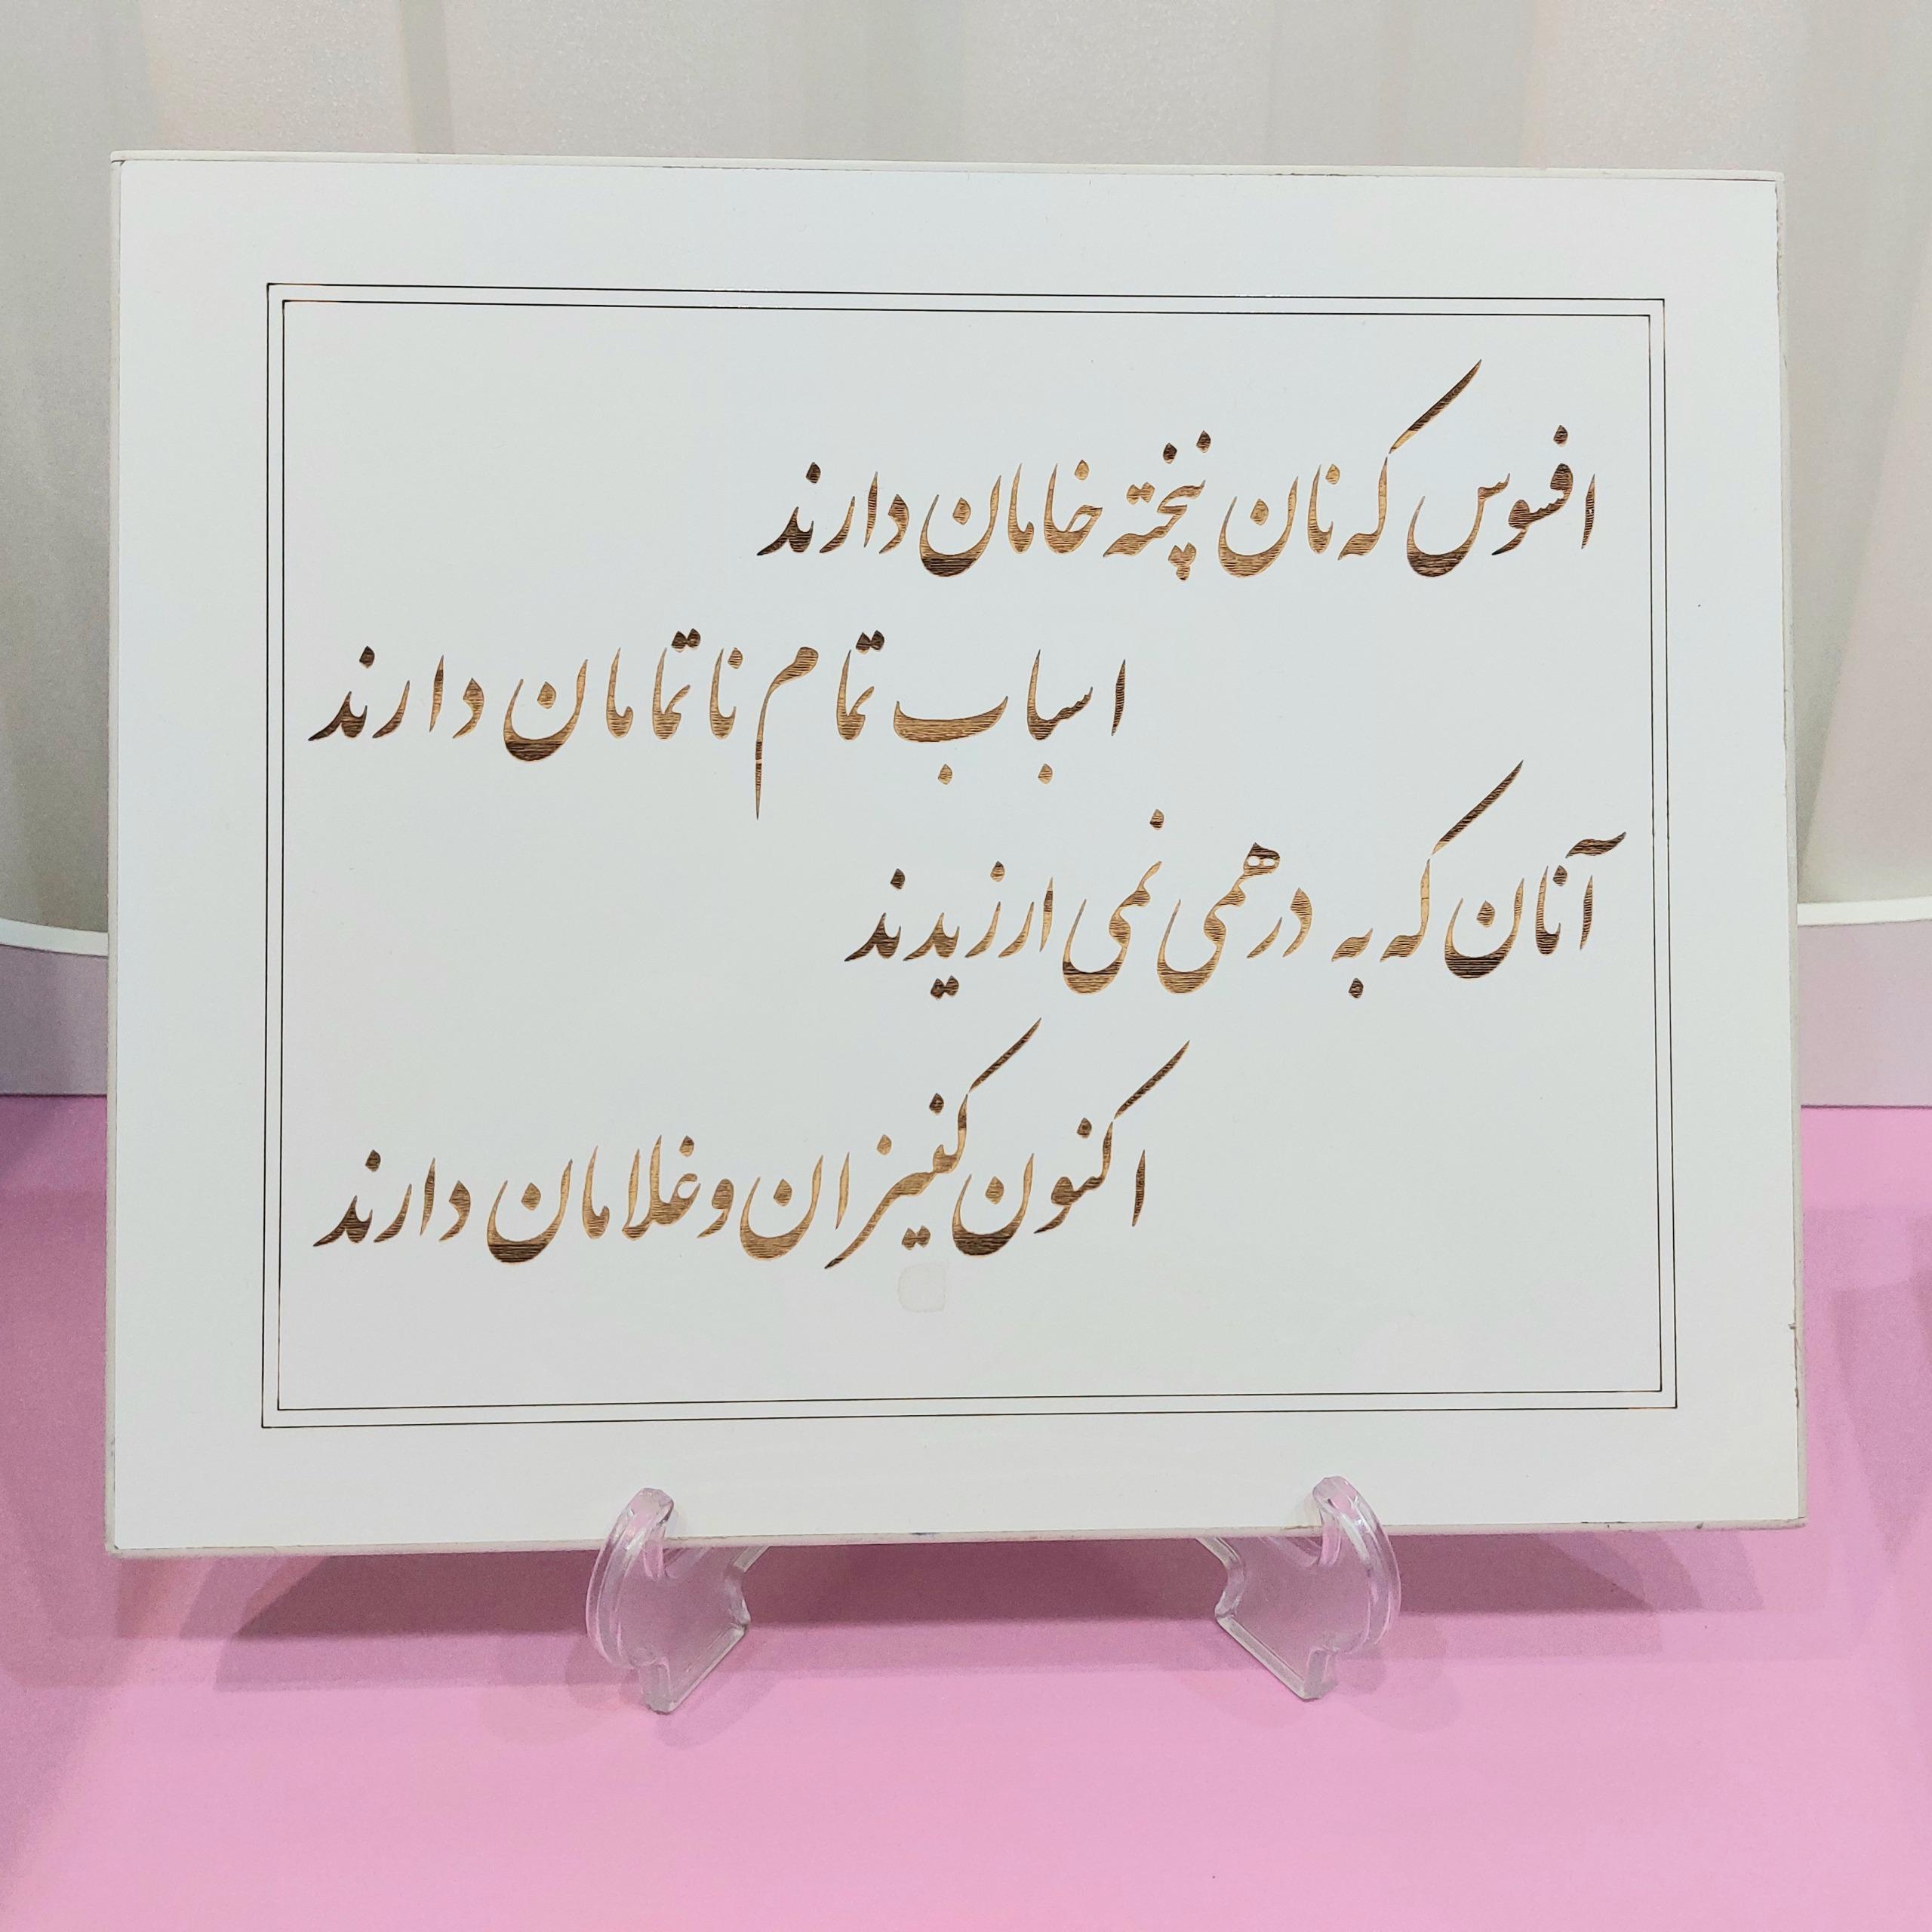 افسوس که نان نپخته خامان دارند
اسباب تمام ناتمامان دارند
آنان که به درهمی نمی ارزیدند
اکنون کفیزان و غلامان دارند